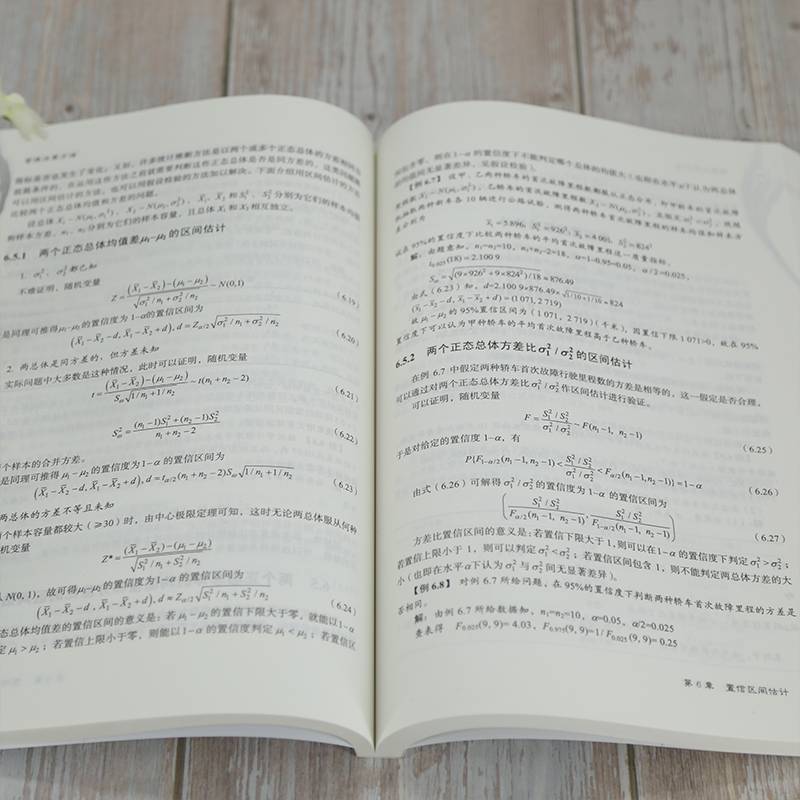 管理决策方法
两个正态总体的均值和方差的问题。
和样本方差，n₁、n₂分别为它们的样本容量，且总体 X₁ 和 X₂ 相互独立。
6.5.1 两个正态总体均值差μ₁-μ₂的区间估计
1. σ₁²、σ₂²都已知
不难证明，随机变量
Z=((X̄₁-X̄₂)-(μ₁-μ₂))/√(σ₁²/n₁+σ₂²/n₂)~N(0,1) (6.19)
是同理可推得μ₁-μ₂的置信度为 1-α的置信区间为
(X̄₁-X̄₂-d, X̄₁-X̄₂+d), d=Z_{α/2}√(σ₁²/n₁+σ₂²/n₂) (6.20)
2. 两总体是同方差的，但方差未知
实际问题中大多数是这种情况，此时可以证明，随机变量
t=((X̄₁-X̄₂)-(μ₁-μ₂))/(S_w√(1/n₁+1/n₂))~t(n₁+n₂-2) (6.21)
S_w²=((n₁-1)S₁²+(n₂-1)S₂²)/(n₁+n₂-2) (6.22)
个样本的合并方差。
是同理可推得 μ₁-μ₂ 的置信度为1-α 的置信区间为
(X̄₁-X̄₂-d, X̄₁-X̄₂+d), d=t_{α/2}(n₁+n₂-2)S_w√(1/n₁+1/n₂) (6.23)
两总体的方差不等且未知
个样本容量都较大（≥30）时，由中心极限定理可知，这时无论两总体服从何种
机变量
Z*=((X̄₁-X̄₂)-(μ₁-μ₂))/√(S₁²/n₁+S₂²/n₂)
N(0, 1)，故可得μ₁-μ₂的置信度为1-α 的置信区间为
(X̄₁-X̄₂-d, X̄₁-X̄₂+d), d=Z_{α/2}√(S₁²/n₁+S₂²/n₂) (6.24)
态总体均值差的置信区间的意义是：若 μ₁-μ₂ 的置信下限大于零，就能以1-α
定 μ₁>μ₂；若置信上限小于零，则能以1-α 的置信度判定 μ₁<μ₂；若置信区
【例 6.7】
X̄₁=5 896, S₁²=926², X̄₂=4 001, S₂²=824²
故在 95%的置信度下比较两种轿车的平均首次故障里程这一质量指标。
解：由题意知，n₁=n₂=10，n₁+n₂-2=18，α=1-0.95=0.05，α/2=0.025，
t_{0.025}(18)=2.100 9
S_w=√((9×926²+9×824²)/18)≈876.49
由式（6.23）知，d=2.100 9×876.49×√(1/10+1/10)≈824
(X̄₁-X̄₂-d, X̄₁-X̄₂+d)=(1 071, 2 719)
故 μ₁-μ₂ 的 95%置信区间为（1 071，2 719）（千米），因置信下限 1 071>0，故在 95%
置信度下可以认为甲种轿车的平均首次故障里程高于乙种轿车。
6.5.2 两个正态总体方差比σ₁²/σ₂²的区间估计
在例 6.7 中假定两种轿车首次故障行驶里程数的方差是相等的，这一假定是否合理，
可以通过对两个正态总体方差比 σ₁²/σ₂² 作区间估计进行验证。
可以证明，随机变量
F=(S₁²/S₂²)/(σ₁²/σ₂²)~F(n₁-1, n₂-1) (6.25)
于是对给定的置信度 1-α，有
P{F_{1-α/2}(n₁-1, n₂-1)<(S₁²/S₂²)/(σ₁²/σ₂²)<F_{α/2}(n₁-1, n₂-1)}=1-α (6.26)
由式（6.26）可解得 σ₁²/σ₂² 的置信度为 1-α 的置信区间为
((S₁²/S₂²)/F_{α/2}(n₁-1, n₂-1), (S₁²/S₂²)/F_{1-α/2}(n₁-1, n₂-1)) (6.27)
方差比置信区间的意义是：若置信下限大于 1，则可以在1-α 的置信度下判定 σ₁²>σ₂²；
若置信上限小于 1，则可以判定 σ₁²<σ₂²；若置信区间包含 1，则不能判定两总体方差的大
小（也即在水平 α下认为 σ₁² 与 σ₂² 间无显著差异）。
【例 6.8】 对例 6.7 所给问题，在 95%的置信度下判断两种轿车首次故障里程的方差是
否相同。
解：由例 6.7 所给数据知，n₁=n₂=10，α=0.05，α/2=0.025
查表得 F_{0.025}(9, 9)=4.03，F_{0.975}(9, 9)=1/F_{0.025}(9, 9)=0.25
第 6 章 置信区间估计